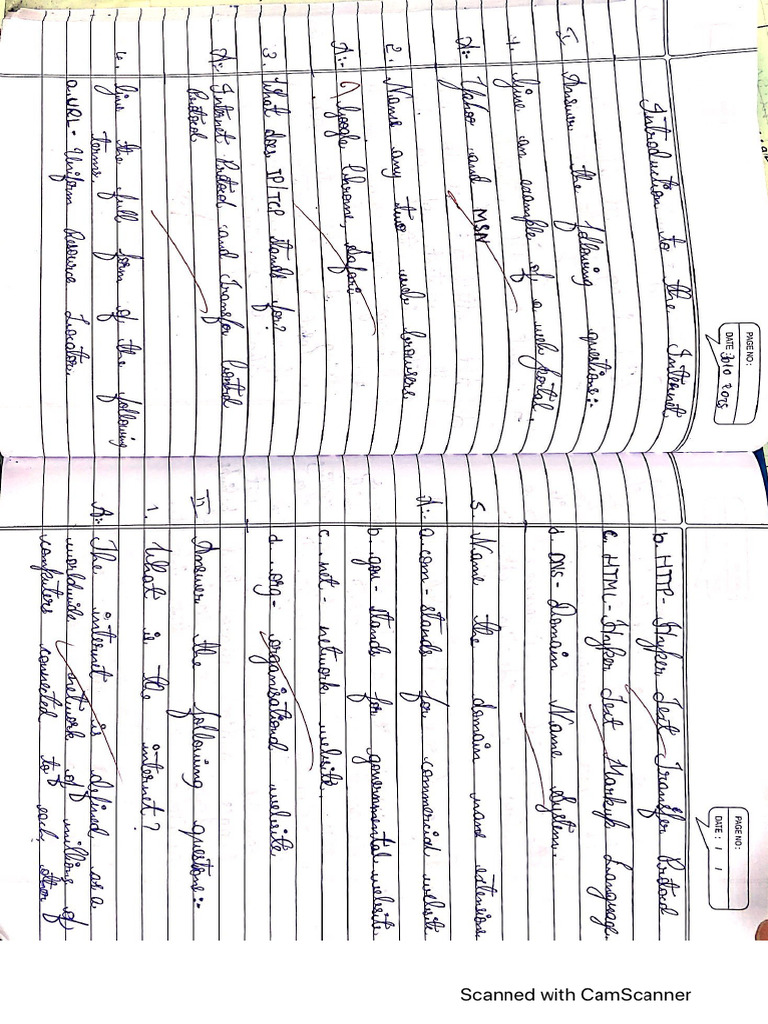 PAGE NO:
DATE 30/10 2025
Introduction to the Internet
I Answer the following questions:-
1. Give an example of a web portal.
A:- Yahoo and MSN
2. Name any two web browsers.
A:- Google Chrome, Safari
3. What does IP/TCP stands for?
A:- Internet Protocol and Transfer Control
Protocol
4. Give the full form of the following
terms.
a. URL - Uniform Resource Locator.
PAGE NO:
DATE: / /
b. HTTP - Hyper Text Transfer Protocol
c. HTML - Hyper Text Markup Language
d. DNS - Domain Name System.
5. Name the domain name extension
A:- a. com - stands for commercial website
b. .gov - stands for governmental website
c. .net - network website.
d. .org - organisational website
II Answer the following questions:-
1. What is the internet?
A:- The internet is defined as a
worldwide network of millions of
computers connected to each other
Scanned with CamScanner